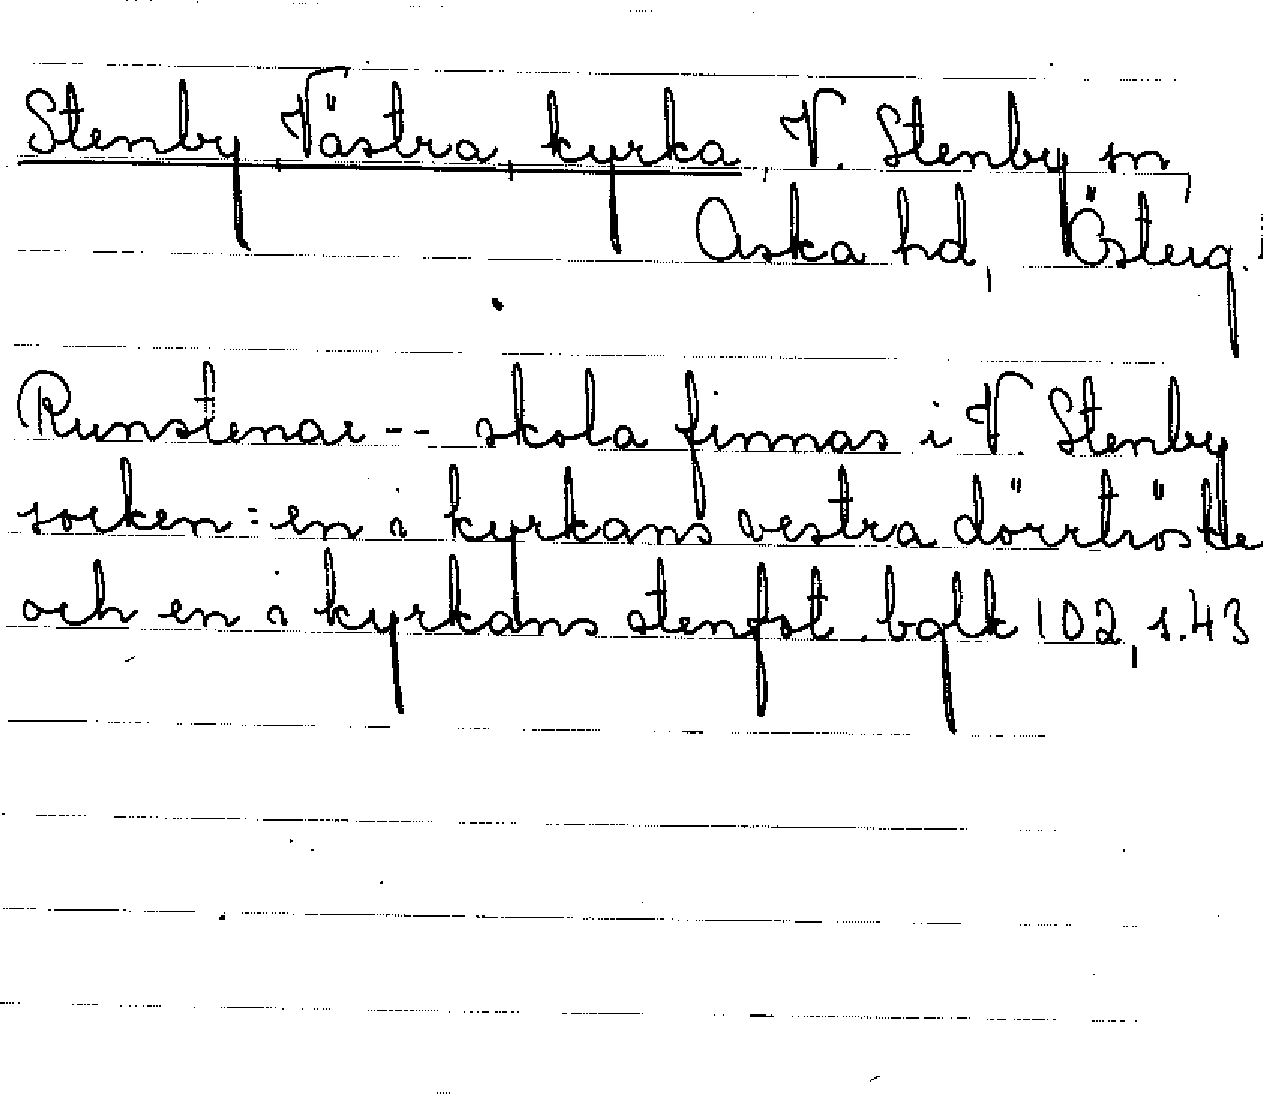 Stenby, Västra, kyrka, V. Stenby sn,
Aska hd, Österg.
Runstenar -- skola finnas i V. Stenby
socken: en i kyrkans vestra dörrtröskel
och en i kyrkans stenfot. balk 102, s. 43